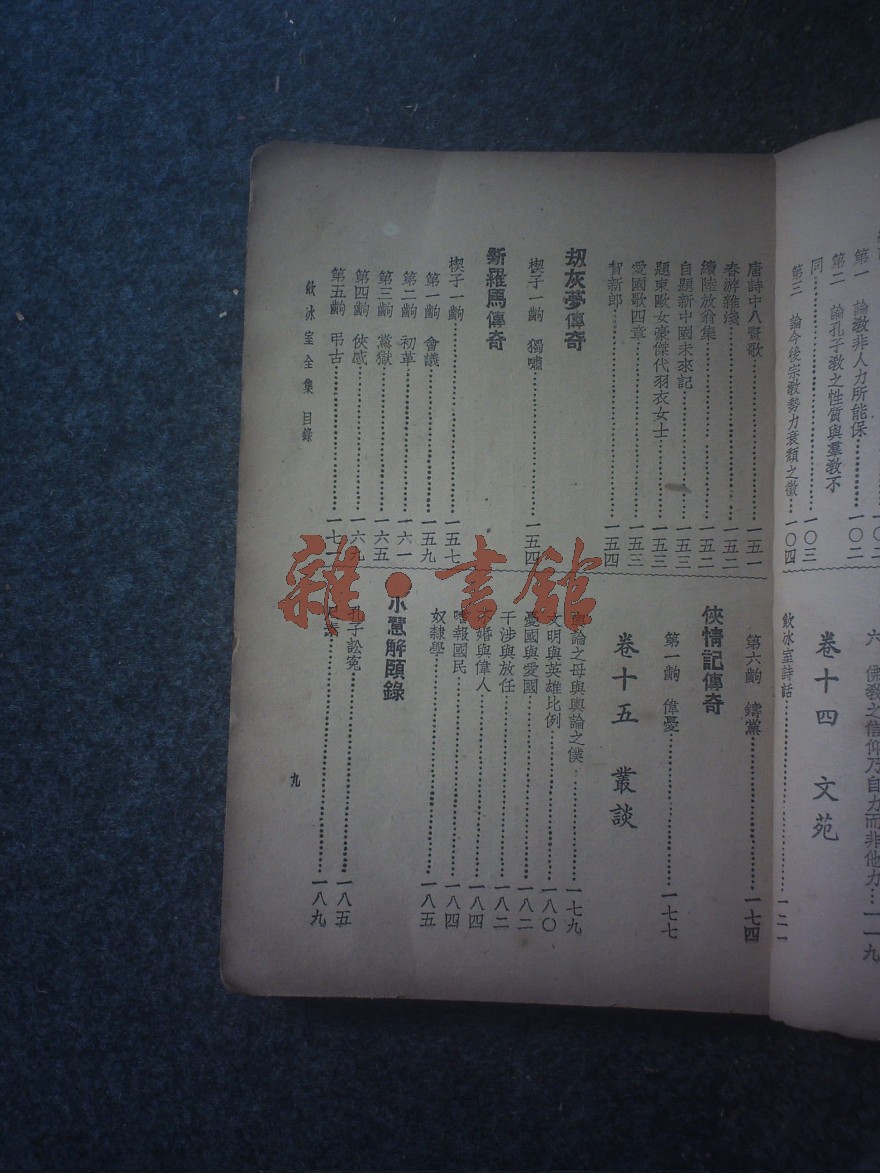 第一 論教非人力所能保……一〇二
第二 論孔子教之性質與羣教不
同……一〇三
第三 論今後宗教勢力衰頹之徵……一〇四
六 佛教之信仰乃自力而非他力…一一九
卷十四 文苑
飲冰室詩話……一二一
唐詩中八賢歌……一五一
春游雜淺……一五二
續陸放翁集……一五二
自題新中國未來記……一五三
題東歐女豪傑代羽衣女士……一五三
愛國歌四章……一五三
賀新郎……一五四
刼灰夢傳奇
楔子一齣 獨嘯……一五四
新羅馬傳奇
楔子一齣……一五七
第一齣 會議……一五九
第二齣 初革……一六一
第三齣 黨獄……一六五
第四齣 俠感……一六九
第五齣 弔古……一七一
第六齣 鑄黨……一七四
俠情記傳奇
第一齣 偉憂……一七七
卷十五 叢談
輿論之母與輿論之僕……一七九
文明與英雄比例……一八〇
憂國與愛國……一八二
干涉與放任……一八二
婚與偉人……一八四
嗜報國民……一八四
奴隸學……一八五
小慧解頤錄
孔子訟冤……一八五
……一八九
飲冰室全集 目錄
九
雜·書館